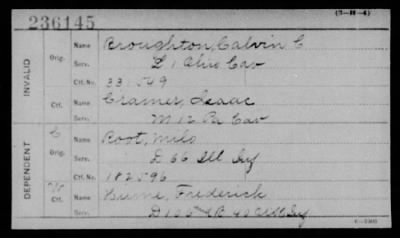 (3-H-4)
236145
INVALID
Orig. Name Broughton, Calvin C
Serv. L 1 Ohio Cav
Ctf. No. 331549
Ctf. Name Cramer, Isaac
Serv. M 12 Pa Cav
DEPENDENT
C
Orig. Name Root, Milo
Serv. D 66 Ill Inf
Ctf. No. 182596
W
Ctf. Name Frederick
Serv.